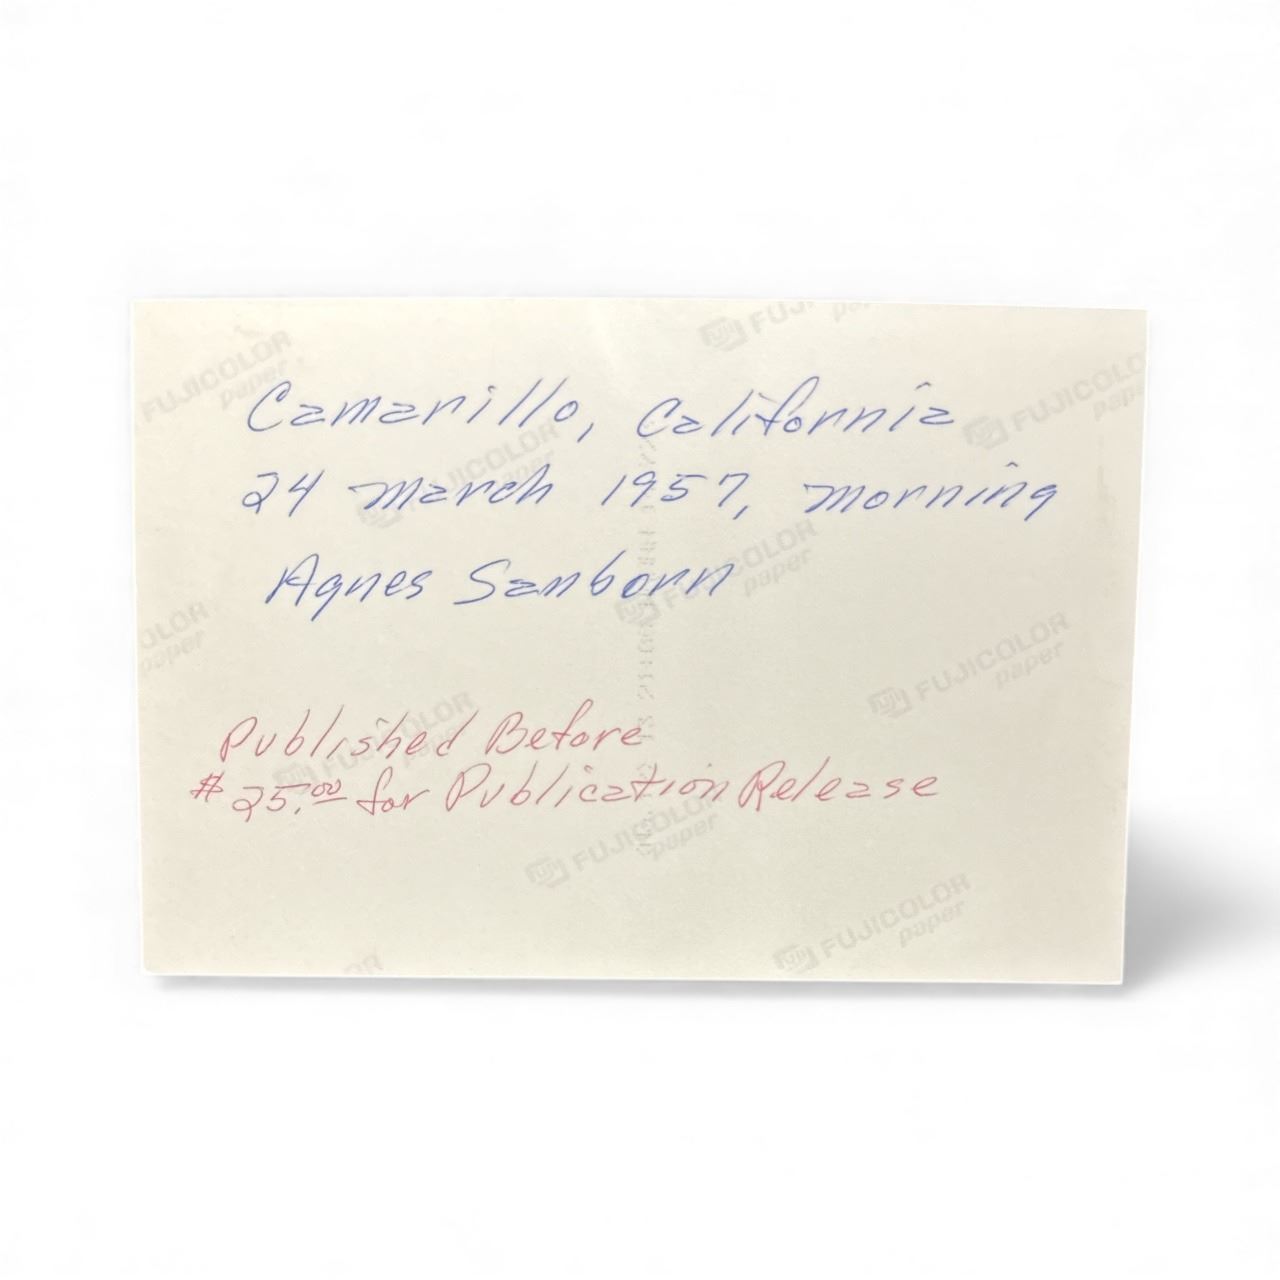 Camarillo, California
24 March 1957, morning
Agnes Sanborn
Published Before
$25.00 for Publication Release
FUJICOLOR paper
FUJI FUJICOLOR paper
FUJI FUJICOLOR paper
FUJI FUJICOLOR paper
FUJI FUJICOLOR paper
FUJI FUJICOLOR paper
FUJI FUJICOLOR paper
FUJI FUJICOLOR paper